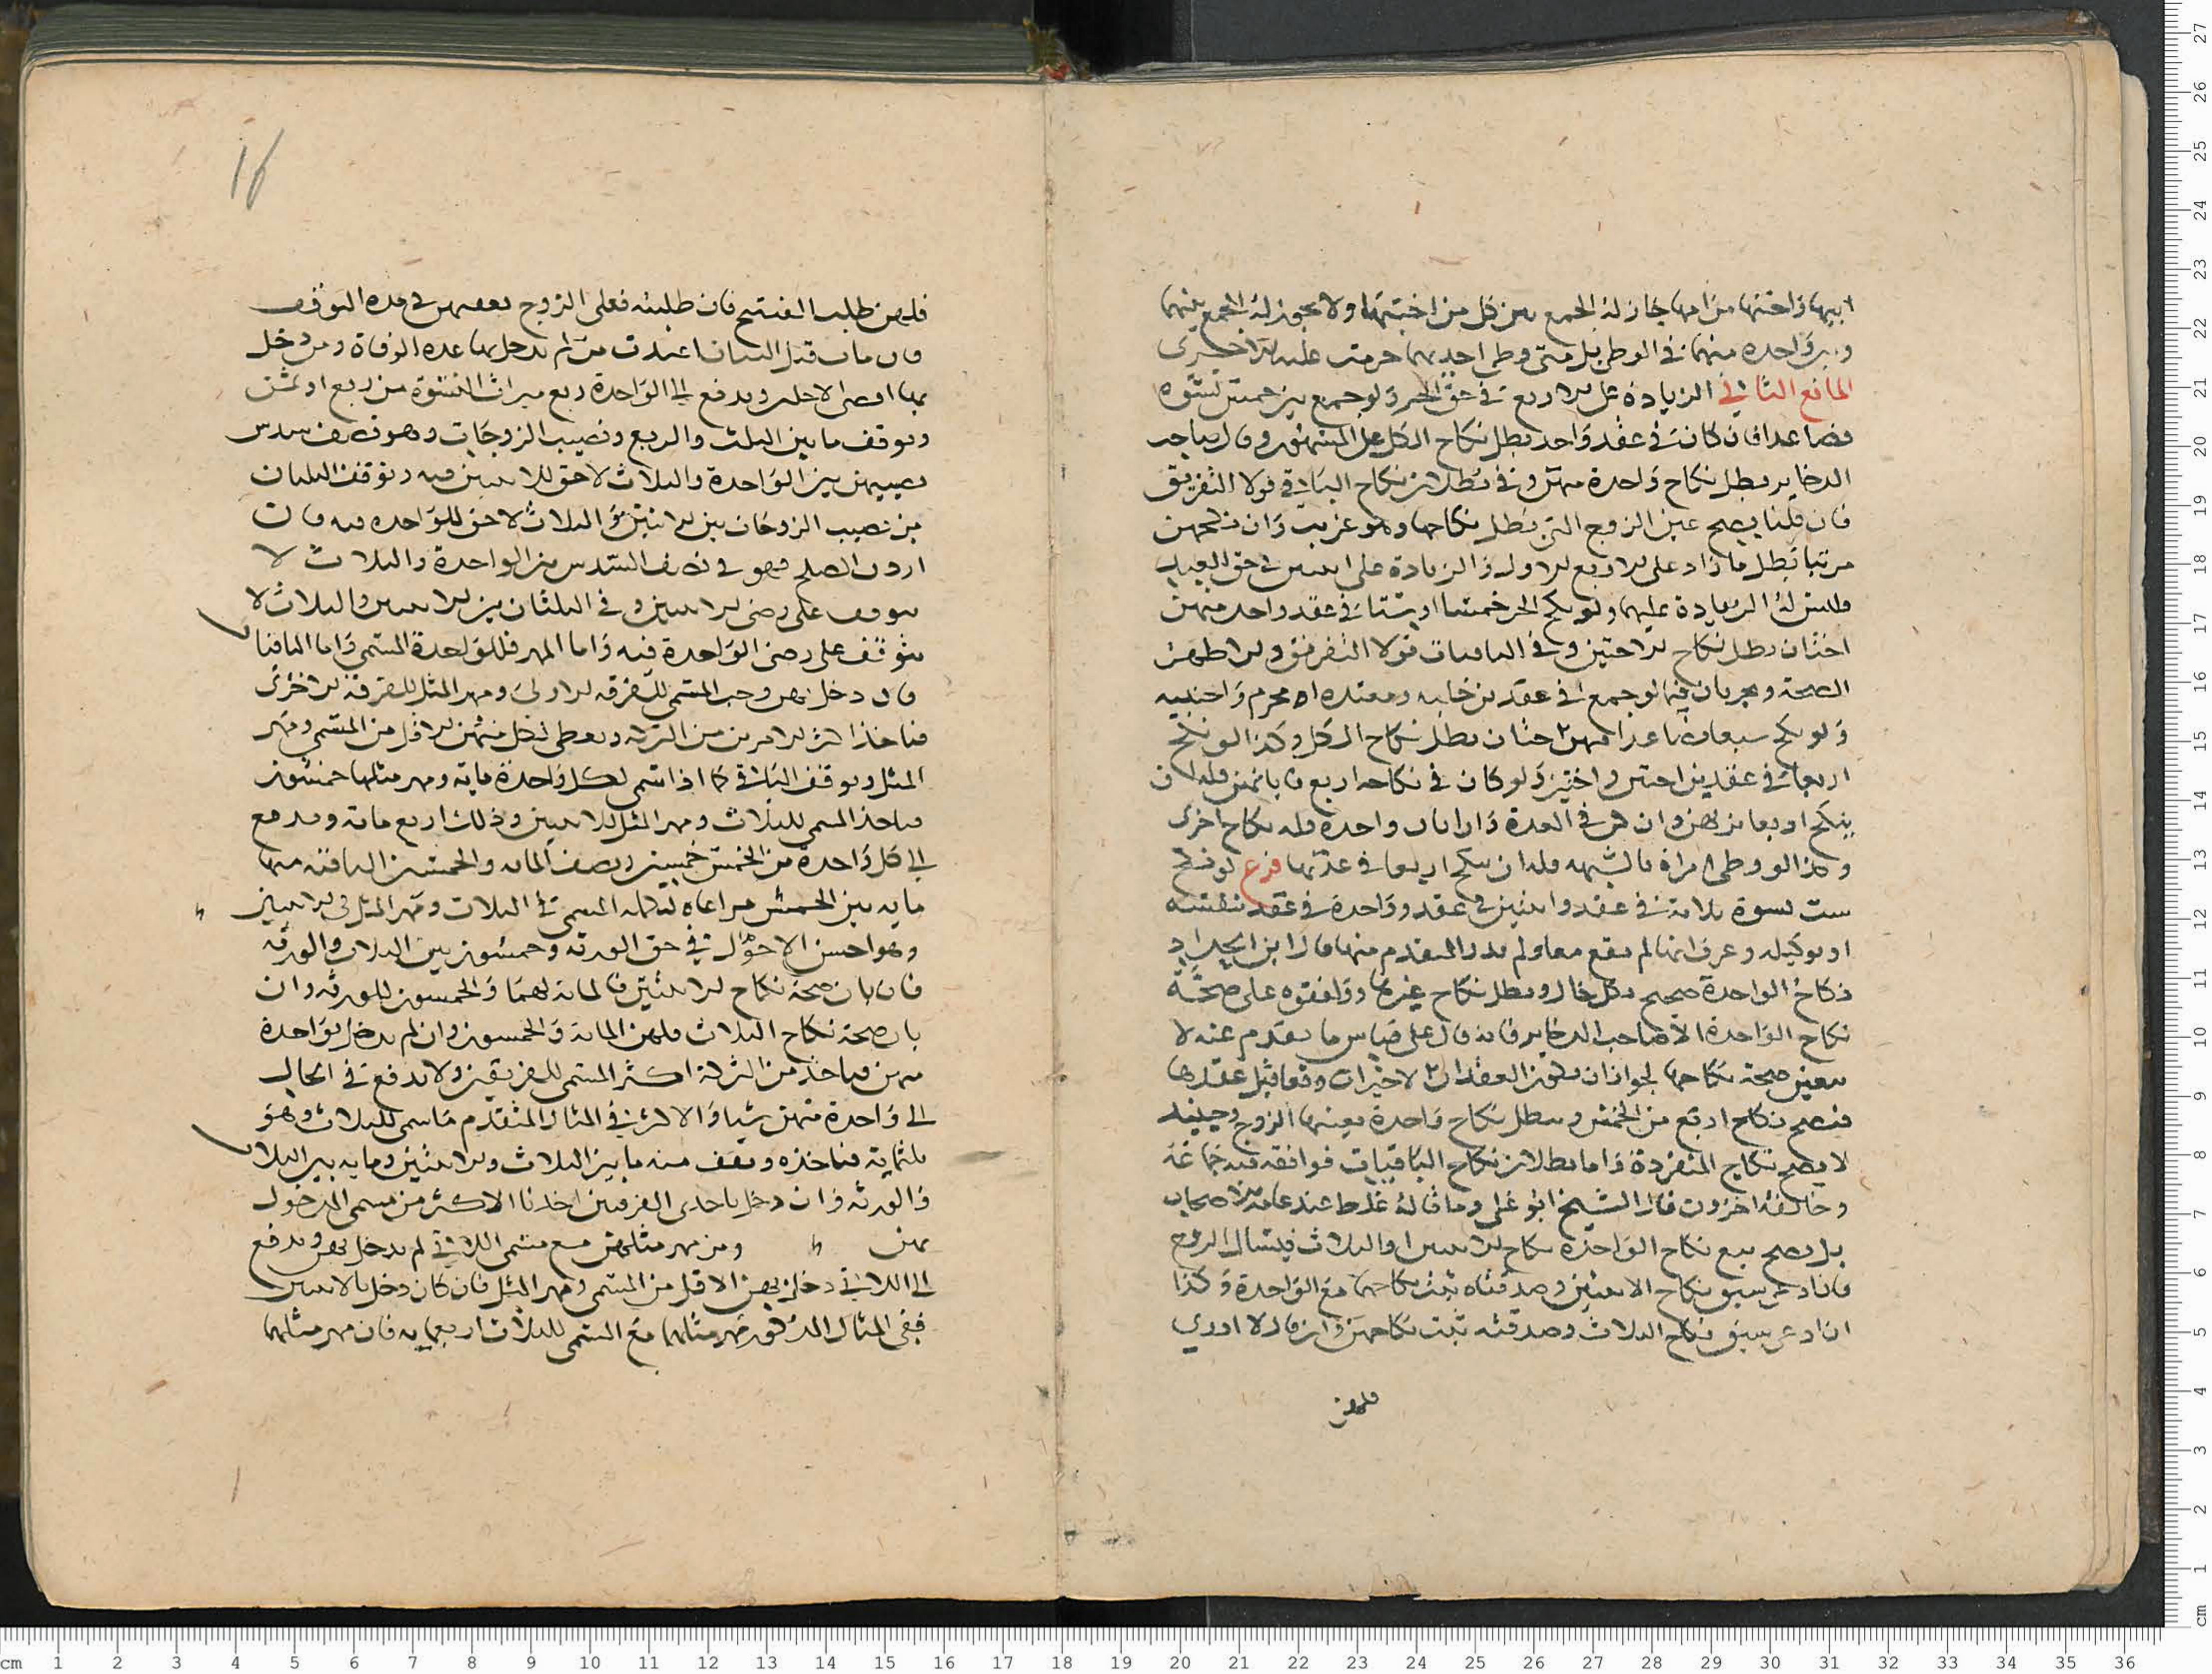 ابيها واختها من امها جاز له الجمع بين كل من اختيها ولا يجوز له الجمع بينهما
وبين واحدة منهما في الوطي بل متى وطي احديهما حرمت عليه الاخرى
المانع الثاني الزيادة على الاربع في حق الحر ولو جمع بين خمس نسوة
فصاعدا فان كان في عقد واحد بطل نكاح الكل على المشهور وقال صاحب
الدخاير يبطل نكاح واحدة منهن وفي بطلان نكاح الباقي قولا التفريق
فان قلنا يصح عين الزوج التي بطل نكاحها وهو غريب وان نكحهن
مرتبا بطل ما زاد على الاربع الاول والزيادة على اثنتين في حق العبد
وليس له الزيادة عليهما ولو نكح الحر خمسا او ستا في عقد واحد منهن
اختان بطل نكاح الاختين وفي الباقيات قولا التفريق والاظهر
الصحة ويجريان فيما لو جمع في عقد بين خليه ومعتده او محرم واجنبيه
ولو نكح سبعا فصاعدا منهن اختان بطل نكاح الكل وكذا لو نكح
اربعا في عقدين اختين واختين ولو كان في نكاحه اربع فابانهن فله ان
ينكح اربعا بدلهن وان كن في العدة وان ابان واحدة فله نكاح اخرى
وكذا لو وطي امراة بالشبهه فله ان ينكح اربعا في عدتها فرع لو نكح
ست نسوة ثلاثة في عقد واثنين في عقد وواحدة في عقد بنفسه
او بوكيله وعرف انها لم تقع معا ولم يدر المتقدم منها قال ابن الحداد
نكاح الواحدة صحيح بكل حال وبطل نكاح غيرها ووافقوه على صحة
نكاح الواحدة الا صاحب الدخاير فانه قال على قياس ما تقدم عنه لا
تتعين صحة نكاحها لجواز ان يكون العقدان الاخيران وقعا قبل عقدها
فيصح نكاح اربع من الخمس ويبطل نكاح واحدة يعينها الزوج وحينئذ
لا يصح نكاح المنفردة واما بطلان نكاح الباقيات فوافقه فيه جماعة
وخالفه اخرون قال الشيخ ابو علي وما قاله غلط عند عامة الاصحاب
بل يصح مع نكاح الواحدة نكاح الاثنتين او الثلاث فيسال الزوج
فان ادعى سبق نكاح الاثنتين وصدقتاه ثبت نكاحهما مع الواحدة وكذا
ان ادعى سبق نكاح الثلاث وصدقنه ثبت نكاحهن وان قال لا ادري
فلهن
16
فلهن طلب الفسخ فان طلبنه فعلى الزوج نفقتهن في مدة التوقف
فان مات قبل البيان اعتدت من لم يدخل بها عدة الوفاة ومن دخل
بها اقصى الاجلين ويدفع الى الواحدة ربع ميراث النسوة من ربع او ثمن
ويوقف ما بين الثلث والربع ونصيب الزوجات وهو نصف سدس
نصيبهن بين الواحدة والثلاث لا حق للاثنتين فيه ويوقف الثلثان
من نصيب الزوجات بين الاثنتين والثلاث لا حق للواحدة فيه فان
اردن الصلح فهو في نصف السدس بين الواحدة والثلاث لا
يتوقف على رضى الاثنتين وفي الثلثان بين الاثنتين والثلاث لا
يتوقف على رضى الواحدة فيه واما المهر فللواحدة المسمى واما الباقيات
فان دخل بهن وجب المسمى للفرقه الاولى ومهر المثل للفرقة الاخرى
فناخذ اكثر الامرين من التركة ونعطي لكل منهن الاقل من المسمى ومهر
المثل ويوقف الباقي كما اذا سمى لكل واحدة ماية ومهر مثلها خمسون
فناخذ المسمى للثلاث ومهر المثل للاثنتين وذلك اربع ماية وندفع
الى كل واحدة من الخمس خمسين ونصف الماية والخمسين الباقية منها
ماية بين الخمس مراعاة المسمى في الثلاث ومهر المثل في الاثنتين
وهو احسن الاحوال في حق الورثة وخمسون بين الثلاث والورثة
فان بان صحة نكاح الاثنتين فالماية لهما والخمسون للورثة وان
بان صحة نكاح الثلاث فلهن الماية والخمسون وان لم يدخل بواحدة
منهن فناخذ من التركة اكثر المسمى للفريقين ولا ندفع في الحال
الى واحدة منهن شيا والاكثر في المثال المتقدم ما سمى للثلاث وهو
ثلثماية فناخذه ونقف منه ما بين الثلاث والاثنتين وماية بين الثلاث
والورثة وان دخل باحدى الفرقتين اخذنا الاكثر من مسمى المدخول
بهن ومن مهر مثلهن مع مسمى اللاتي لم يدخل بهن وندفع
الى اللاتي دخل بهن الاقل من المسمى ومهر المثل فان كان دخل بالاثنتين
ففي المثال المذكور مهر مثلهما مع المسمى للثلاث اربعمايه فان مهر مثلهما